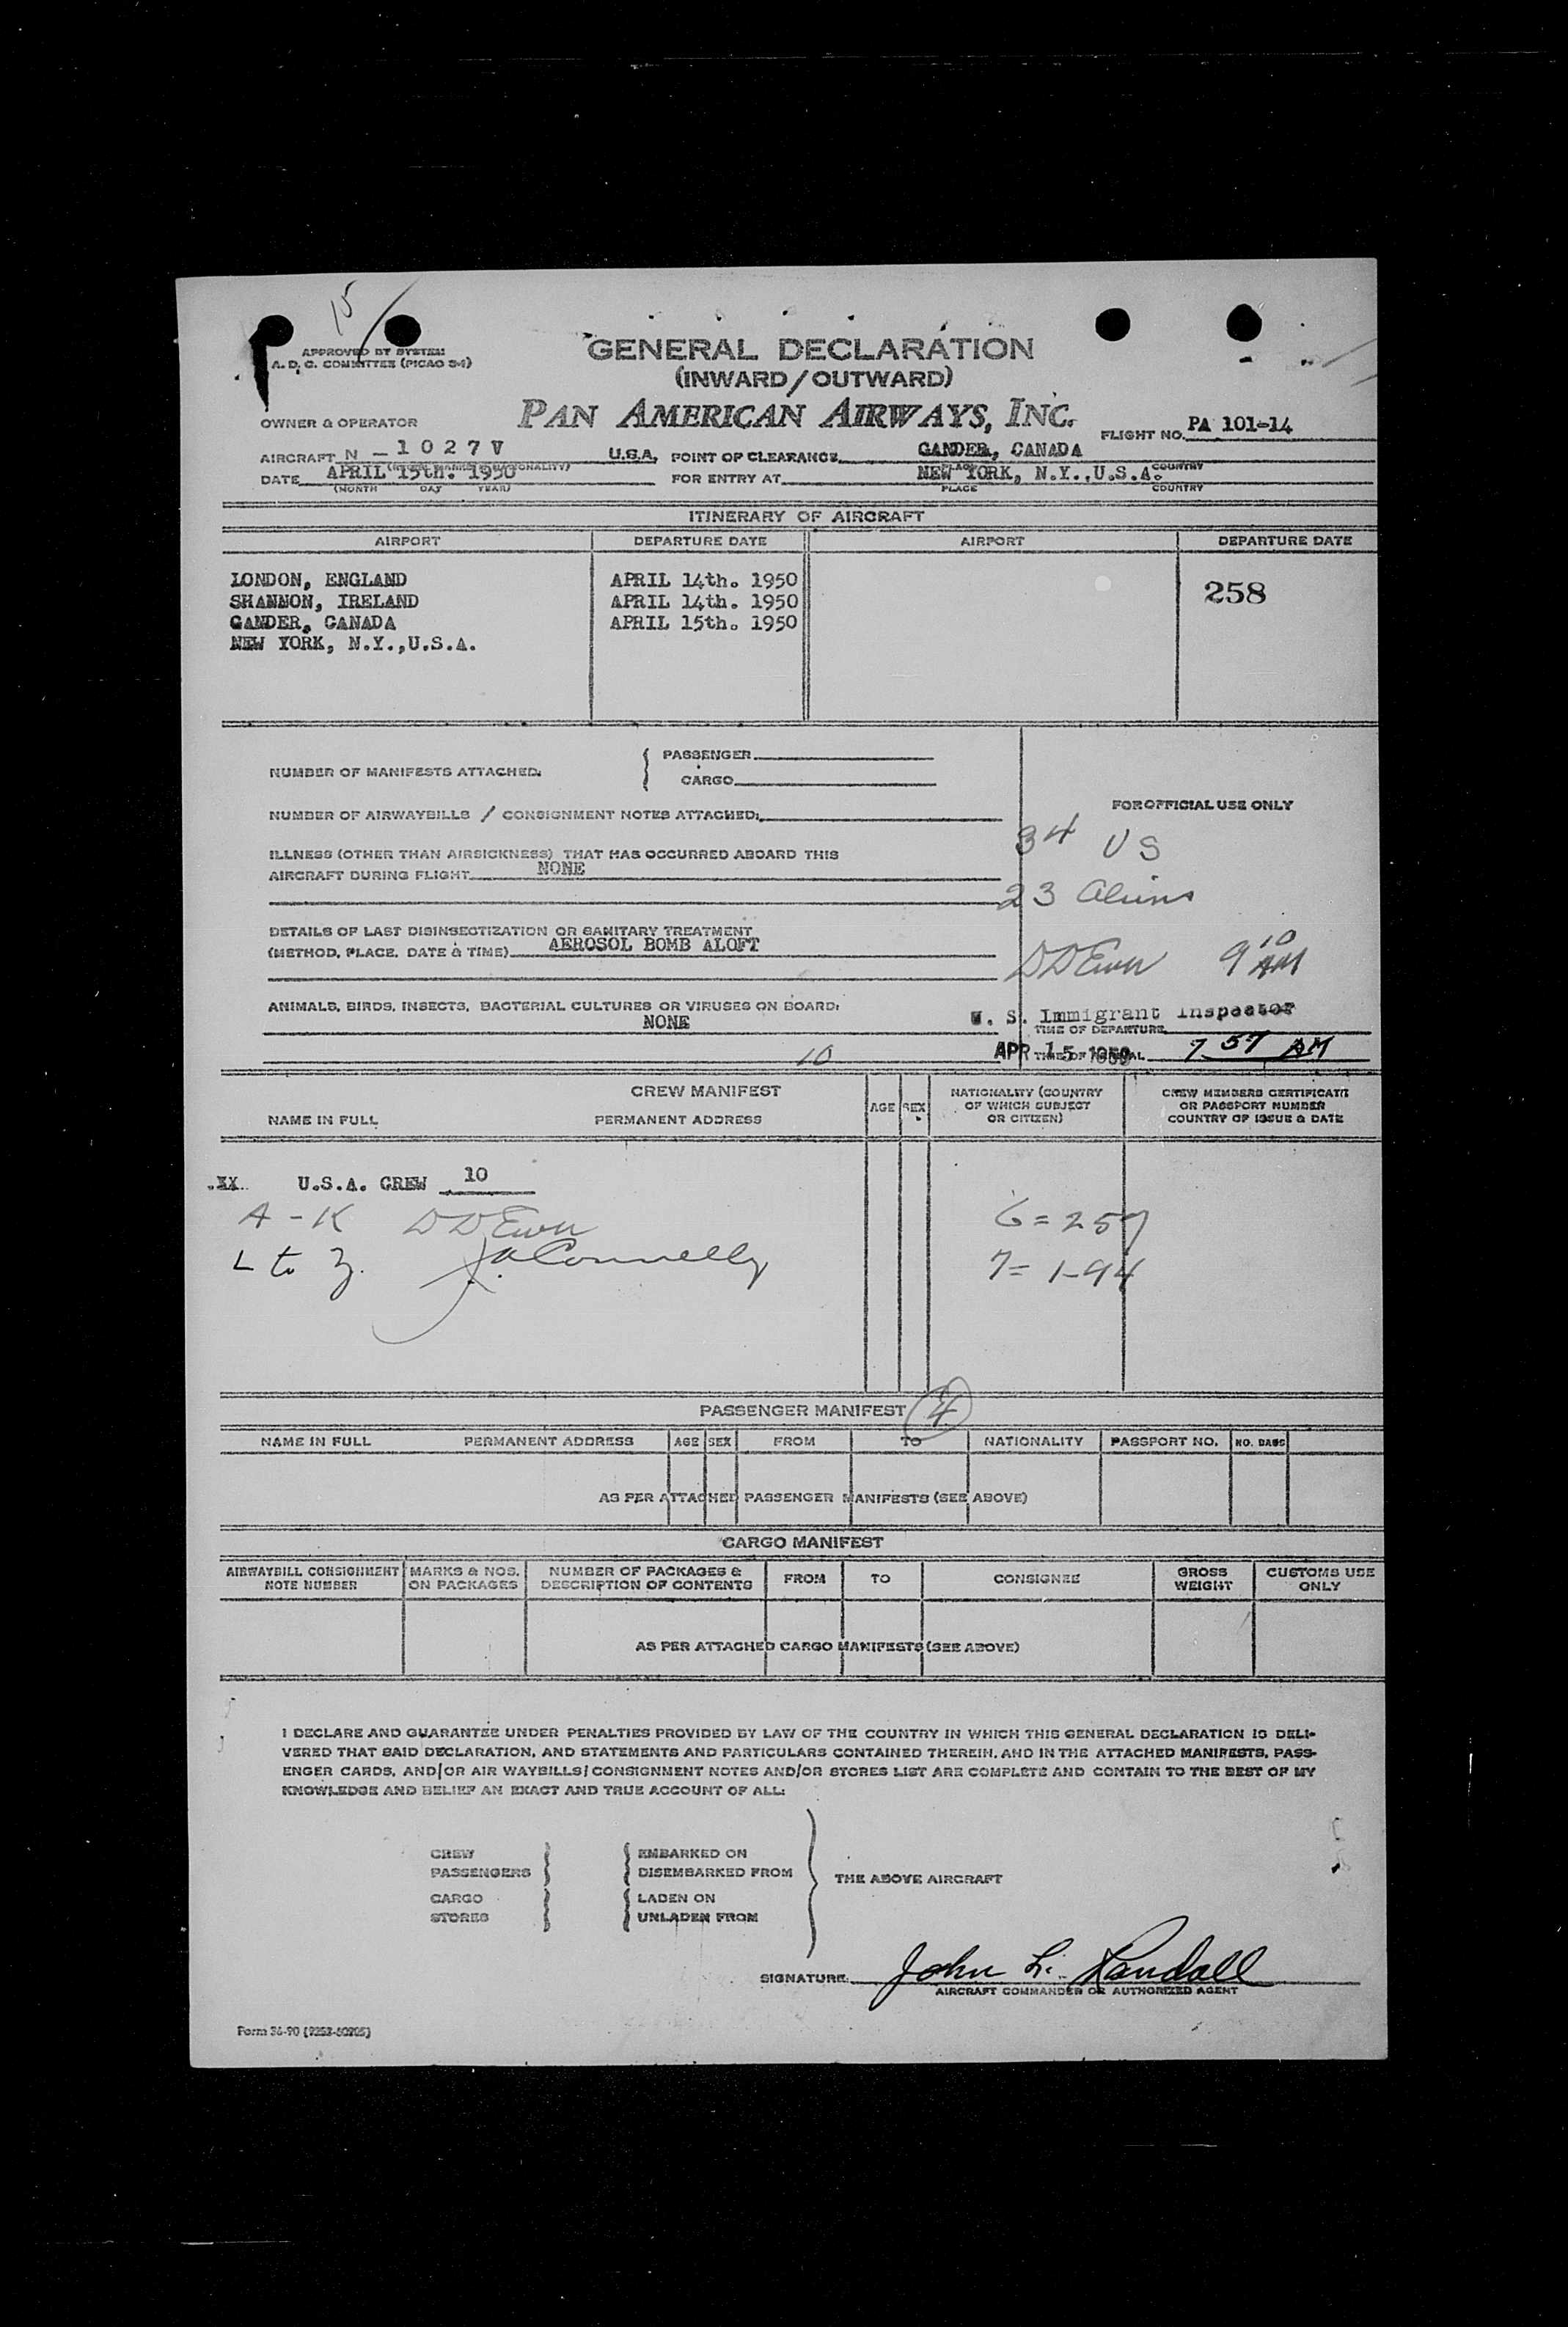 15
APPROVED BY SYSTEM
A. D. C. COMMITTEE (PICAO 54)
GENERAL DECLARATION
(INWARD/OUTWARD)
OWNER & OPERATOR PAN AMERICAN AIRWAYS, INC. FLIGHT NO. PA 101-14
AIRCRAFT N - 1027V U.S.A. POINT OF CLEARANCE GANDER, CANADA
DATE APRIL 15th. 1950 FOR ENTRY AT NEW YORK, N.Y.,U.S.A. COUNTRY
(MONTH DAY YEAR) PLACE COUNTRY
ITINERARY OF AIRCRAFT
AIRPORT DEPARTURE DATE AIRPORT DEPARTURE DATE
LONDON, ENGLAND APRIL 14th. 1950 258
SHANNON, IRELAND APRIL 14th. 1950
GANDER, CANADA APRIL 15th. 1950
NEW YORK, N.Y.,U.S.A.
NUMBER OF MANIFESTS ATTACHED: PASSENGER
CARGO
NUMBER OF AIRWAYBILLS / CONSIGNMENT NOTES ATTACHED: FOR OFFICIAL USE ONLY
34 US
ILLNESS (OTHER THAN AIRSICKNESS) THAT HAS OCCURRED ABOARD THIS
AIRCRAFT DURING FLIGHT NONE
23 Aliens
DETAILS OF LAST DISINSECTIZATION OR SANITARY TREATMENT
(METHOD, PLACE, DATE & TIME) AEROSOL BOMB ALOFT
DD Ewen 9 10 AM
ANIMALS, BIRDS, INSECTS, BACTERIAL CULTURES OR VIRUSES ON BOARD:
NONE U. S. Immigrant Inspector
TIME OF DEPARTURE
10 APR 15 1950 TIME OF ARRIVAL 7 57 AM
CREW MANIFEST
NAME IN FULL PERMANENT ADDRESS AGE SEX NATIONALITY (COUNTRY OF WHICH SUBJECT OR CITIZEN) CREW MEMBERS CERTIFICATE OR PASSPORT NUMBER COUNTRY OF ISSUE & DATE
.XX. U.S.A. CREW 10
A - K DD Ewen 6 = 257
L to Z. J.A. Connelly 7 = 1-94
PASSENGER MANIFEST 4
NAME IN FULL PERMANENT ADDRESS AGE SEX FROM TO NATIONALITY PASSPORT NO. NO. BAGS
AS PER ATTACHED PASSENGER MANIFESTS (SEE ABOVE)
CARGO MANIFEST
AIRWAYBILL CONSIGNMENT NOTE NUMBER MARKS & NOS. ON PACKAGES NUMBER OF PACKAGES & DESCRIPTION OF CONTENTS FROM TO CONSIGNEE GROSS WEIGHT CUSTOMS USE ONLY
AS PER ATTACHED CARGO MANIFESTS (SEE ABOVE)
I DECLARE AND GUARANTEE UNDER PENALTIES PROVIDED BY LAW OF THE COUNTRY IN WHICH THIS GENERAL DECLARATION IS DELI-
VERED THAT SAID DECLARATION, AND STATEMENTS AND PARTICULARS CONTAINED THEREIN, AND IN THE ATTACHED MANIFESTS, PASS-
ENGER CARDS, AND/OR AIR WAYBILLS/CONSIGNMENT NOTES AND/OR STORES LIST ARE COMPLETE AND CONTAIN TO THE BEST OF MY
KNOWLEDGE AND BELIEF AN EXACT AND TRUE ACCOUNT OF ALL:
CREW EMBARKED ON
PASSENGERS DISEMBARKED FROM THE ABOVE AIRCRAFT
CARGO LADEN ON
STORES UNLADEN FROM
SIGNATURE: John L. Randall
AIRCRAFT COMMANDER OR AUTHORIZED AGENT